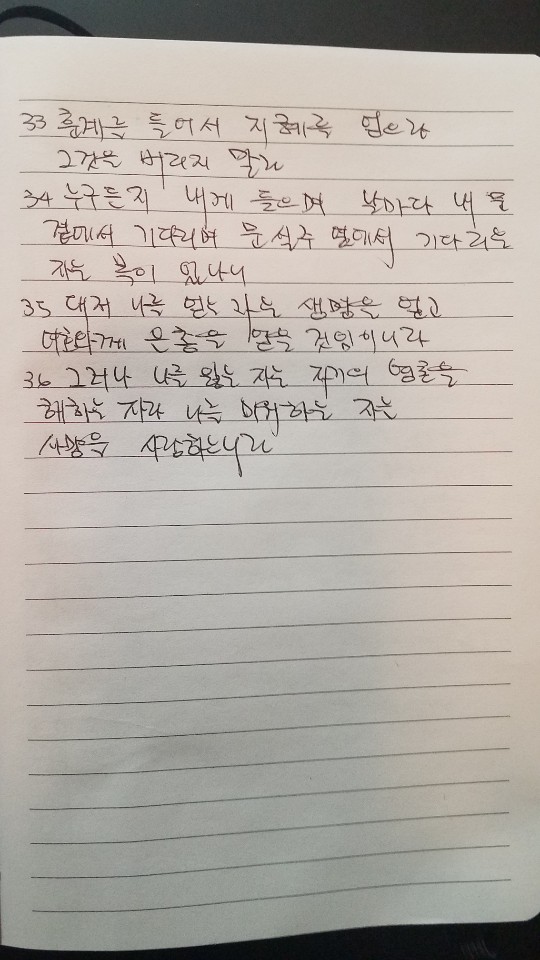 33 훈계를 들어서 지혜를 얻으라
그것을 버리지 말라
34 누구든지 내게 들으며 날마다 내 문
곁에서 기다리며 문설주 옆에서 기다리는
자는 복이 있나니
35 대저 나를 얻는 자는 생명을 얻고
여호와께 은총을 얻을 것임이니라
36 그러나 나를 잃는 자는 자기의 영혼을
해하는 자라 나를 미워하는 자는
사망을 사랑하느니라